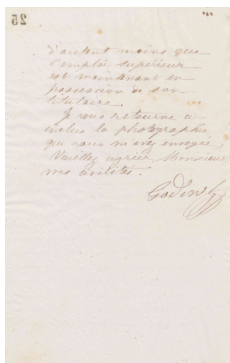 25
d'autant moins que
l'emploi supérieur
est maintenant en
possession de son
titulaire.
Je vous retourne ci-
inclus la photographie
que vous m'avez envoyée.
Veuillez agréer Monsieur
mes civilités.
Godin